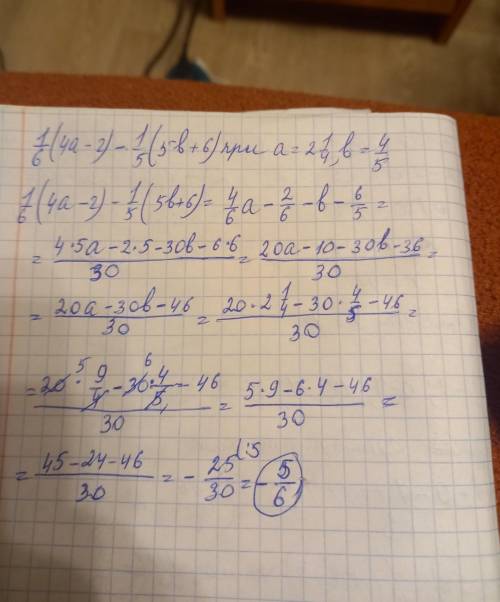 1/6 (4a-2) - 1/5 (5b+6) при a = 2 1/4, b = 4/5
1/6 (4a-2) - 1/5 (5b+6) = 4/6 a - 2/6 - b - 6/5 =
= (4·5a - 2·5 - 30b - 6·6)/30 = (20a - 10 - 30b - 36)/30 =
= (20a - 30b - 46)/30 = (20·2 1/4 - 30·4/5 - 46)/30 =
= (20 5 · 9/4 - 30 6 · 4/5 - 46)/30 = (5·9 - 6·4 - 46)/30 =
= (45 - 24 - 46)/30 = - 25/30 (:5 = - 5/6